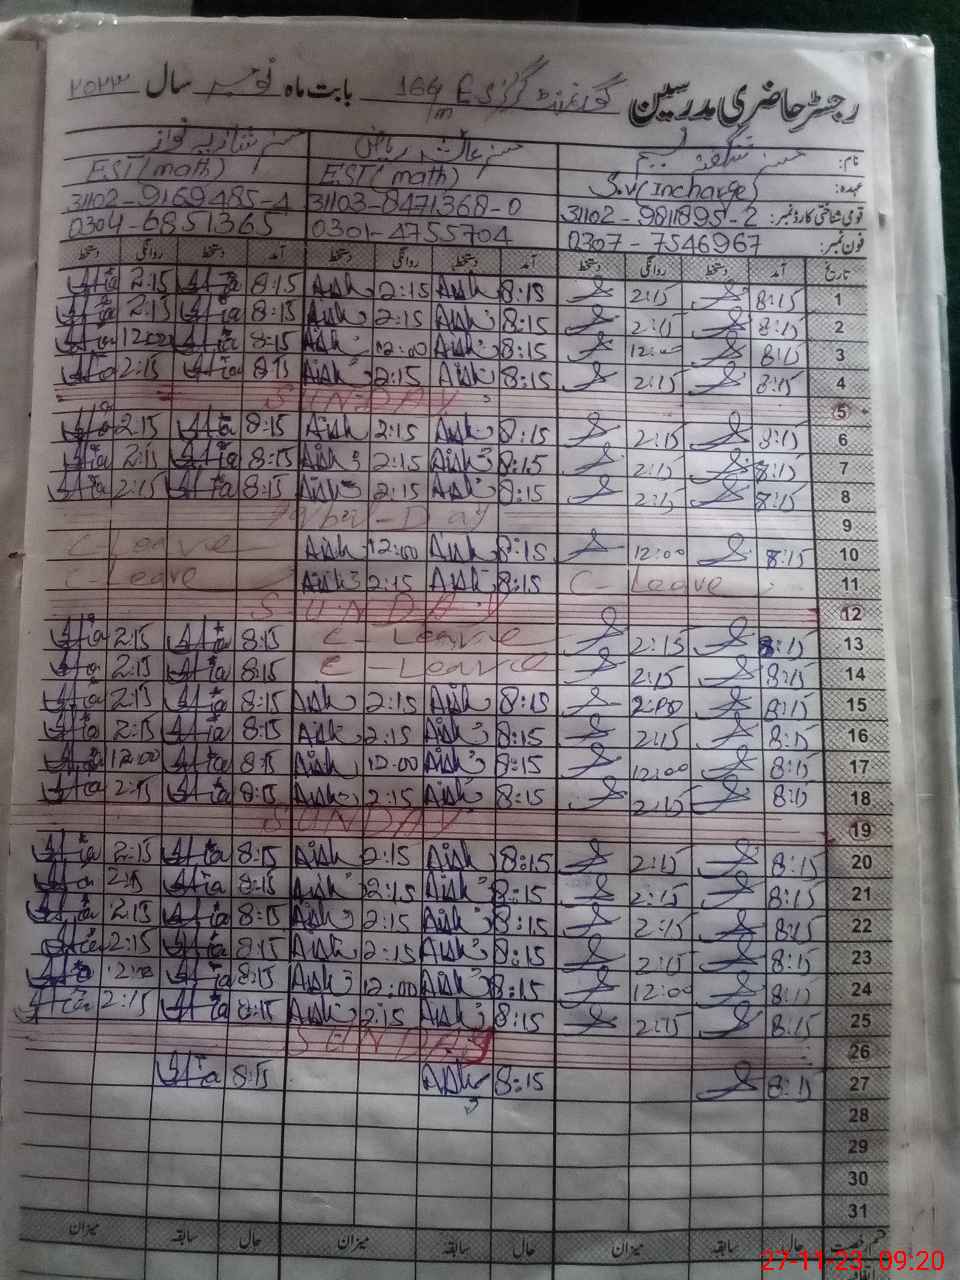 رجسٹر حاضری مدرسین گورنمنٹ گرلز E/S 164/m بابت ماہ نومبر سال ۲۰۲۳
نام: مسز شگفتہ نسیم مسز عائشہ ریاض مسز شازیہ نواز
عہدہ: S.V (Incharge) EST (math) EST (math)
قومی شناختی کارڈ نمبر: 31102-9811895-2 31103-8471368-0 31102-9169485-4
فون نمبر: 0307-7546967 0301-4755704 0304-6851365
تاریخ آمد دستخط روانگی دستخط آمد دستخط روانگی دستخط آمد دستخط روانگی دستخط
1 8:15 2:15 8:15 Aish 2:15 Aish 8:15 2:15
2 8:15 2:15 8:15 Aish 2:15 Aish 8:15 2:15
3 8:15 12:00 8:15 Aish 12:00 Aish 8:15 12:00
4 8:15 2:15 8:15 Aish 2:15 Aish 8:15 2:15
5 SUNDAY
6 8:15 2:15 8:15 Aish 2:15 Aish 8:15 2:15
7 8:15 2:15 8:15 Aish 2:15 Aish 8:15 2:15
8 8:15 2:15 8:15 Aish 2:15 Aish 8:15 2:15
9 Iqbal-Day
10 8:15 12:00 8:15 Aish 12:00 Aish C Leave
11 C-Leave 8:15 Aish 2:15 Aish C-Leave
12 SUNDAY
13 8:15 2:15 C-Leave 8:15 2:15
14 8:15 2:15 C-Leave 8:15 2:15
15 8:15 8:15 Aish 2:15 Aish 8:15 2:15
16 8:15 2:15 8:15 Aish 2:15 Aish 8:15 2:15
17 8:15 12:00 8:15 Aish 12:00 Aish 8:15 12:00
18 8:15 2:15 8:15 Aish 2:15 Aish 8:15 2:15
19 SUNDAY
20 8:15 2:15 8:15 Aish 2:15 Aish 8:15 2:15
21 8:15 2:15 8:15 Aish 2:15 Aish 8:15 2:15
22 8:15 2:15 8:15 Aish 2:15 Aish 8:15 2:15
23 8:15 2:15 8:15 Aish 2:15 Aish 8:15 2:15
24 8:15 12:00 8:15 Aish 12:00 Aish 8:15
25 8:15 2:15 8:15 Aish 2:15 Aish 8:15 2:15
26 SUNDAY
27 8:15 8:15 Aish 8:15
28
29
30
31
حال سابقہ میزان حال سابقہ میزان حال سابقہ میزان
27-11-23 09:20